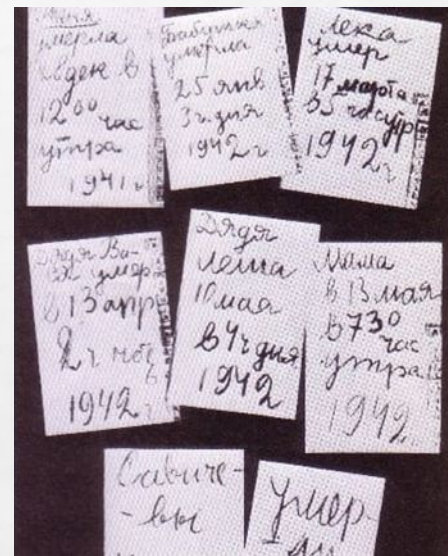 Женя
умерла
28 ден в
12 00 час
утра
1941 г
Бабушка
умерла
25 янв
3 ч дня
1942 г
Лека
умер
17 марта
в 5 час утр
1942 г
Дядя Ва-
ся умер
в 13 апр
2 ч
1942 г
Дядя
Леша
10 мая
в 4 ч дня
1942
Мама
в 13 мая
в 7 30
час
утра
1942
Савиче-
-вы
Умер-
-ли